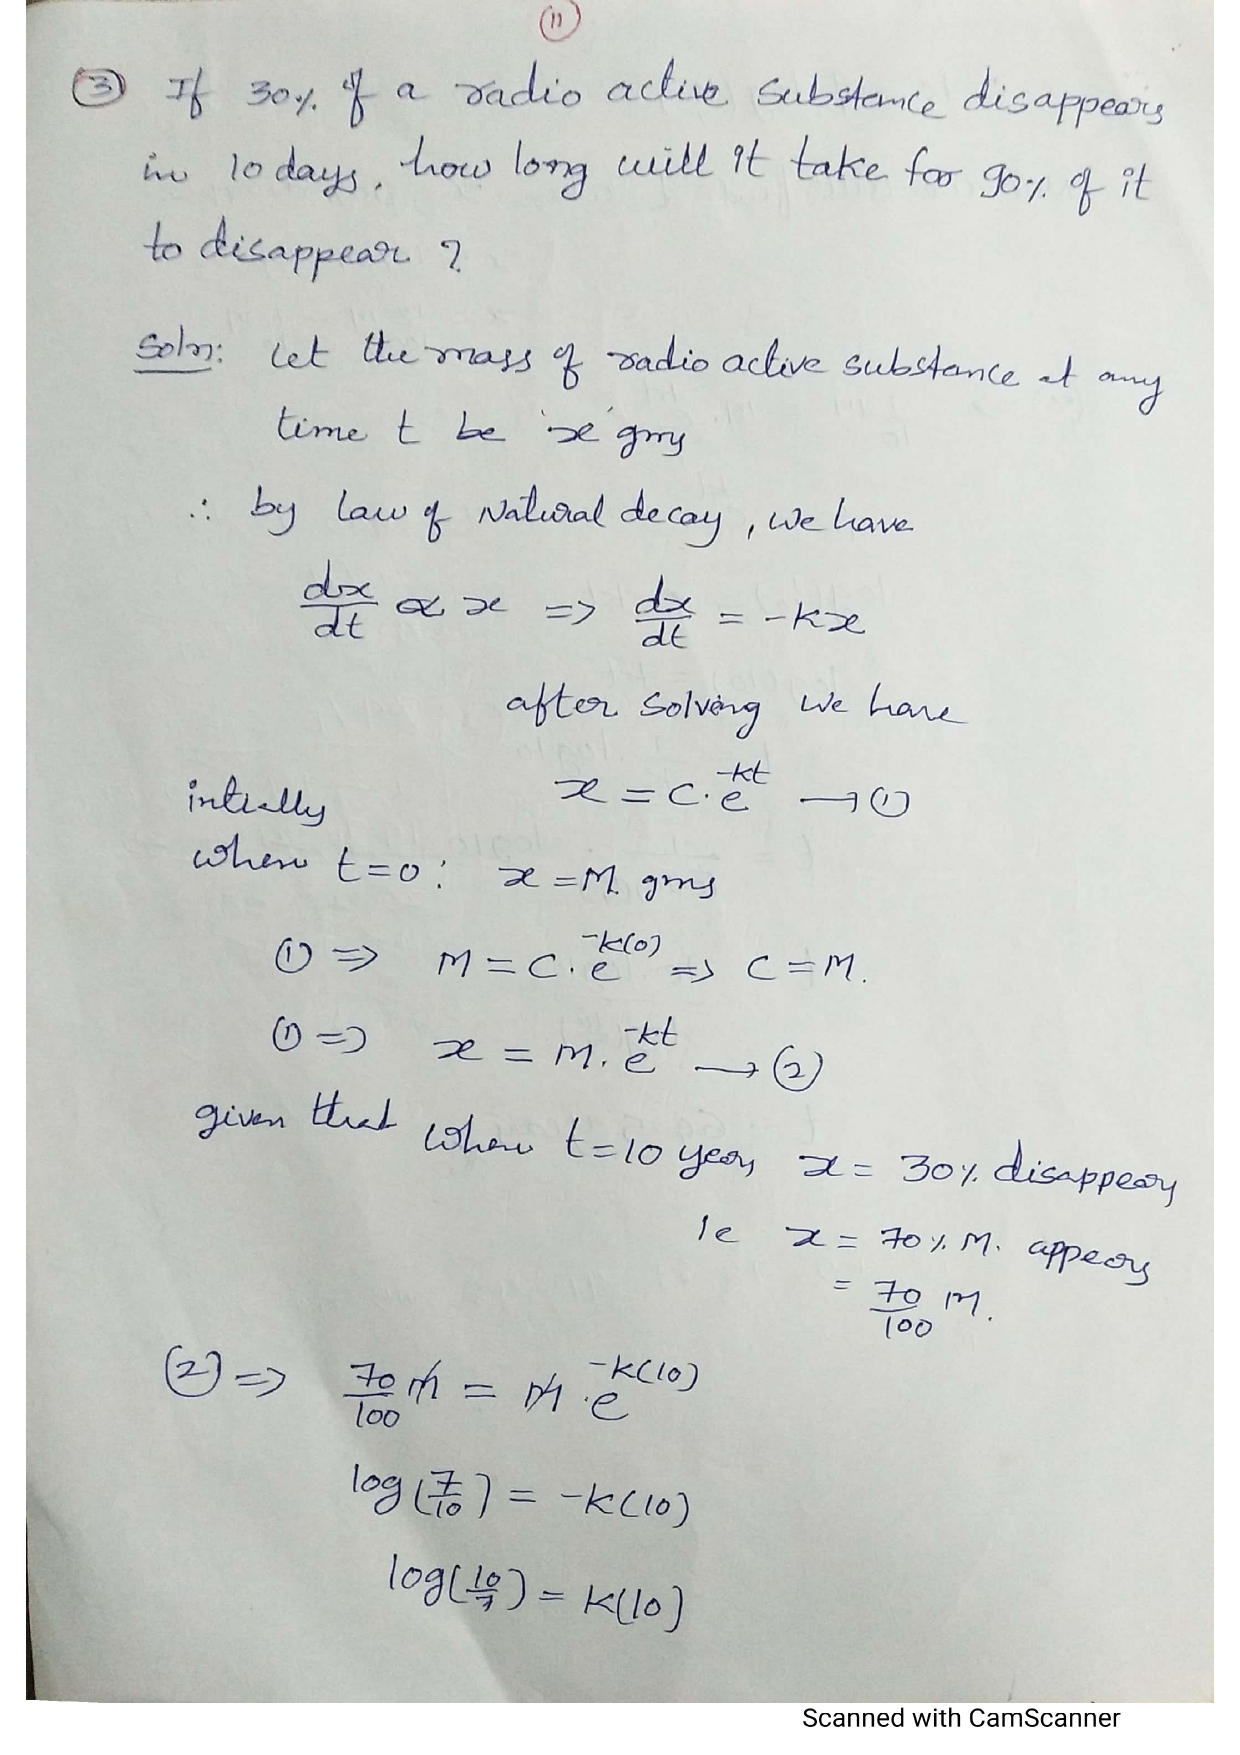 11
3 If 30% of a radio active substance disappears
in 10 days, how long will it take for 90% of it
to disappear ?
Soln: Let the mass of radio active substance at any
time t be 'x' gms
∴ by law of Natural decay, we have
dx/dt ∝ x => dx/dt = -kx
after solving we have
x = c·e^-kt → ①
intially
when t=0: x = M gms
① => M = c·e^-k(0) => c = M.
① => x = M·e^-kt → ②
given that when t=10 years x = 30% disappears
ie x = 70% M. appears
= 70/100 M.
② => 70/100 M = M·e^-k(10)
log(7/10) = -k(10)
log(10/7) = k(10)
Scanned with CamScanner